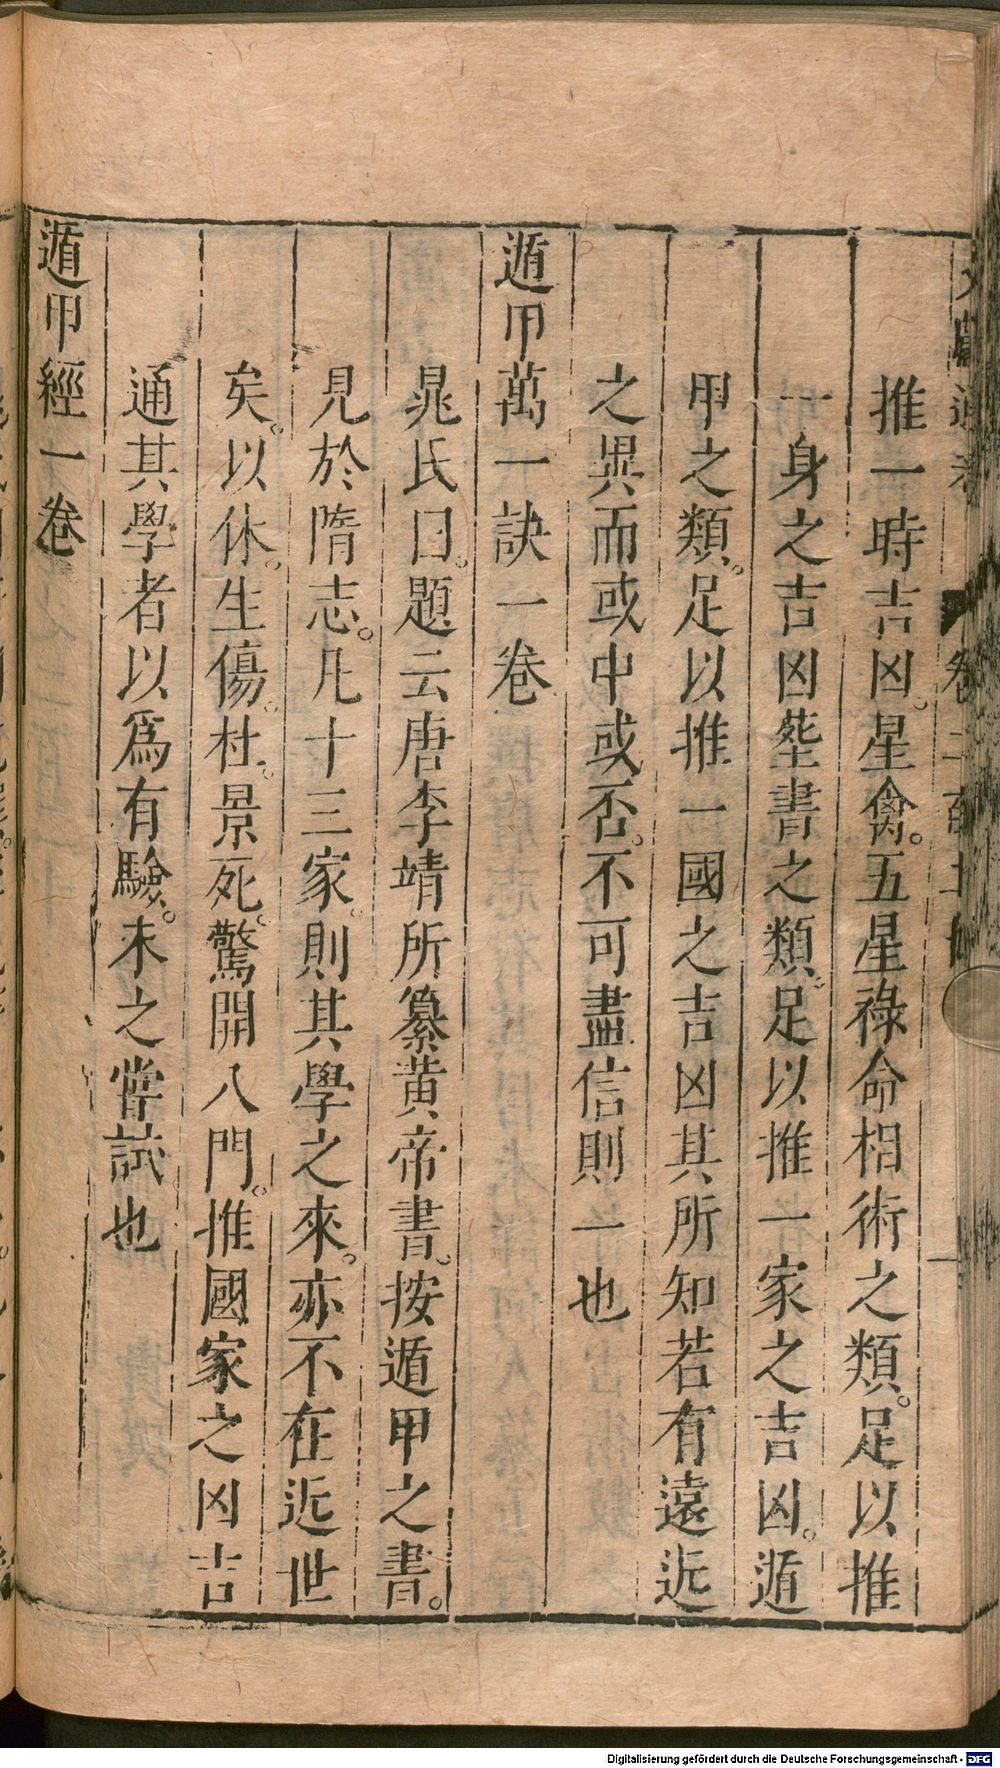 推一時吉凶。星禽。五星祿命相術之類。足以推
一身之吉凶塟書之類。足以推一家之吉凶。遁
甲之類。足以推一國之吉凶其所知若有遠近
之異而或中或否。不可盡信則一也
遁甲萬一訣一卷
晁氏曰。題云唐李靖所纂黃帝書。按遁甲之書。
見於隋志。凡十三家。則其學之來。亦不在近世
矣。以休。生傷。杜。景死。驚開八門。推國家之凶吉
通其學者以爲有驗。未之嘗試也
遁甲經一卷
Digitalisierung gefördert durch die Deutsche Forschungsgemeinschaft - DFG